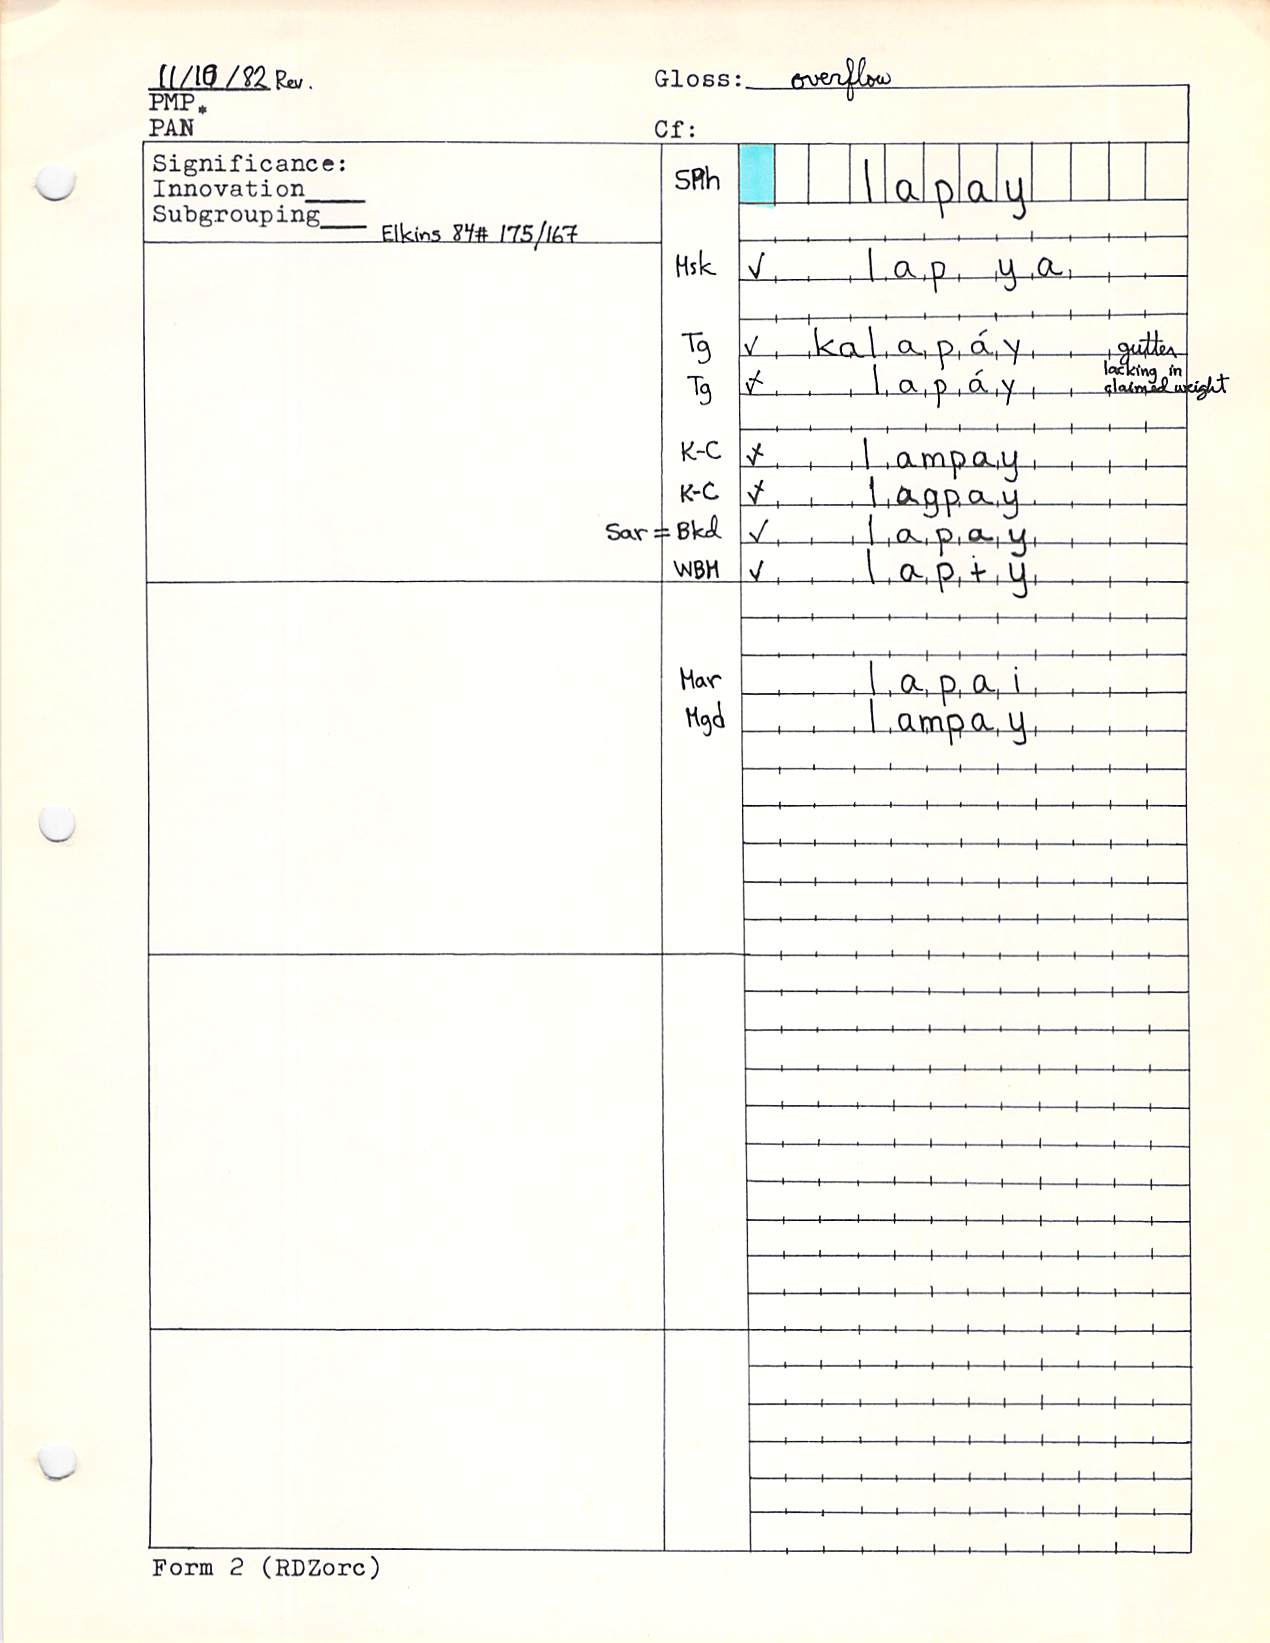 11/10/82 Rev. Gloss: overflow
PMP*
PAN Cf:
Significance:
Innovation____
Subgrouping____ Elkins 84# 175/167
SPh lapay
Msk ✓ lap ya
Tg ✓ kalapáy gutter
Tg ✓ lapáy lacking in
claimed weight
K-C ✓ lampay
K-C ✓ lagpay
Sar = Bkd ✓ lapay
WBM ✓ lapɨy
Mar lapai
Mgd lampay
Form 2 (RDZorc)